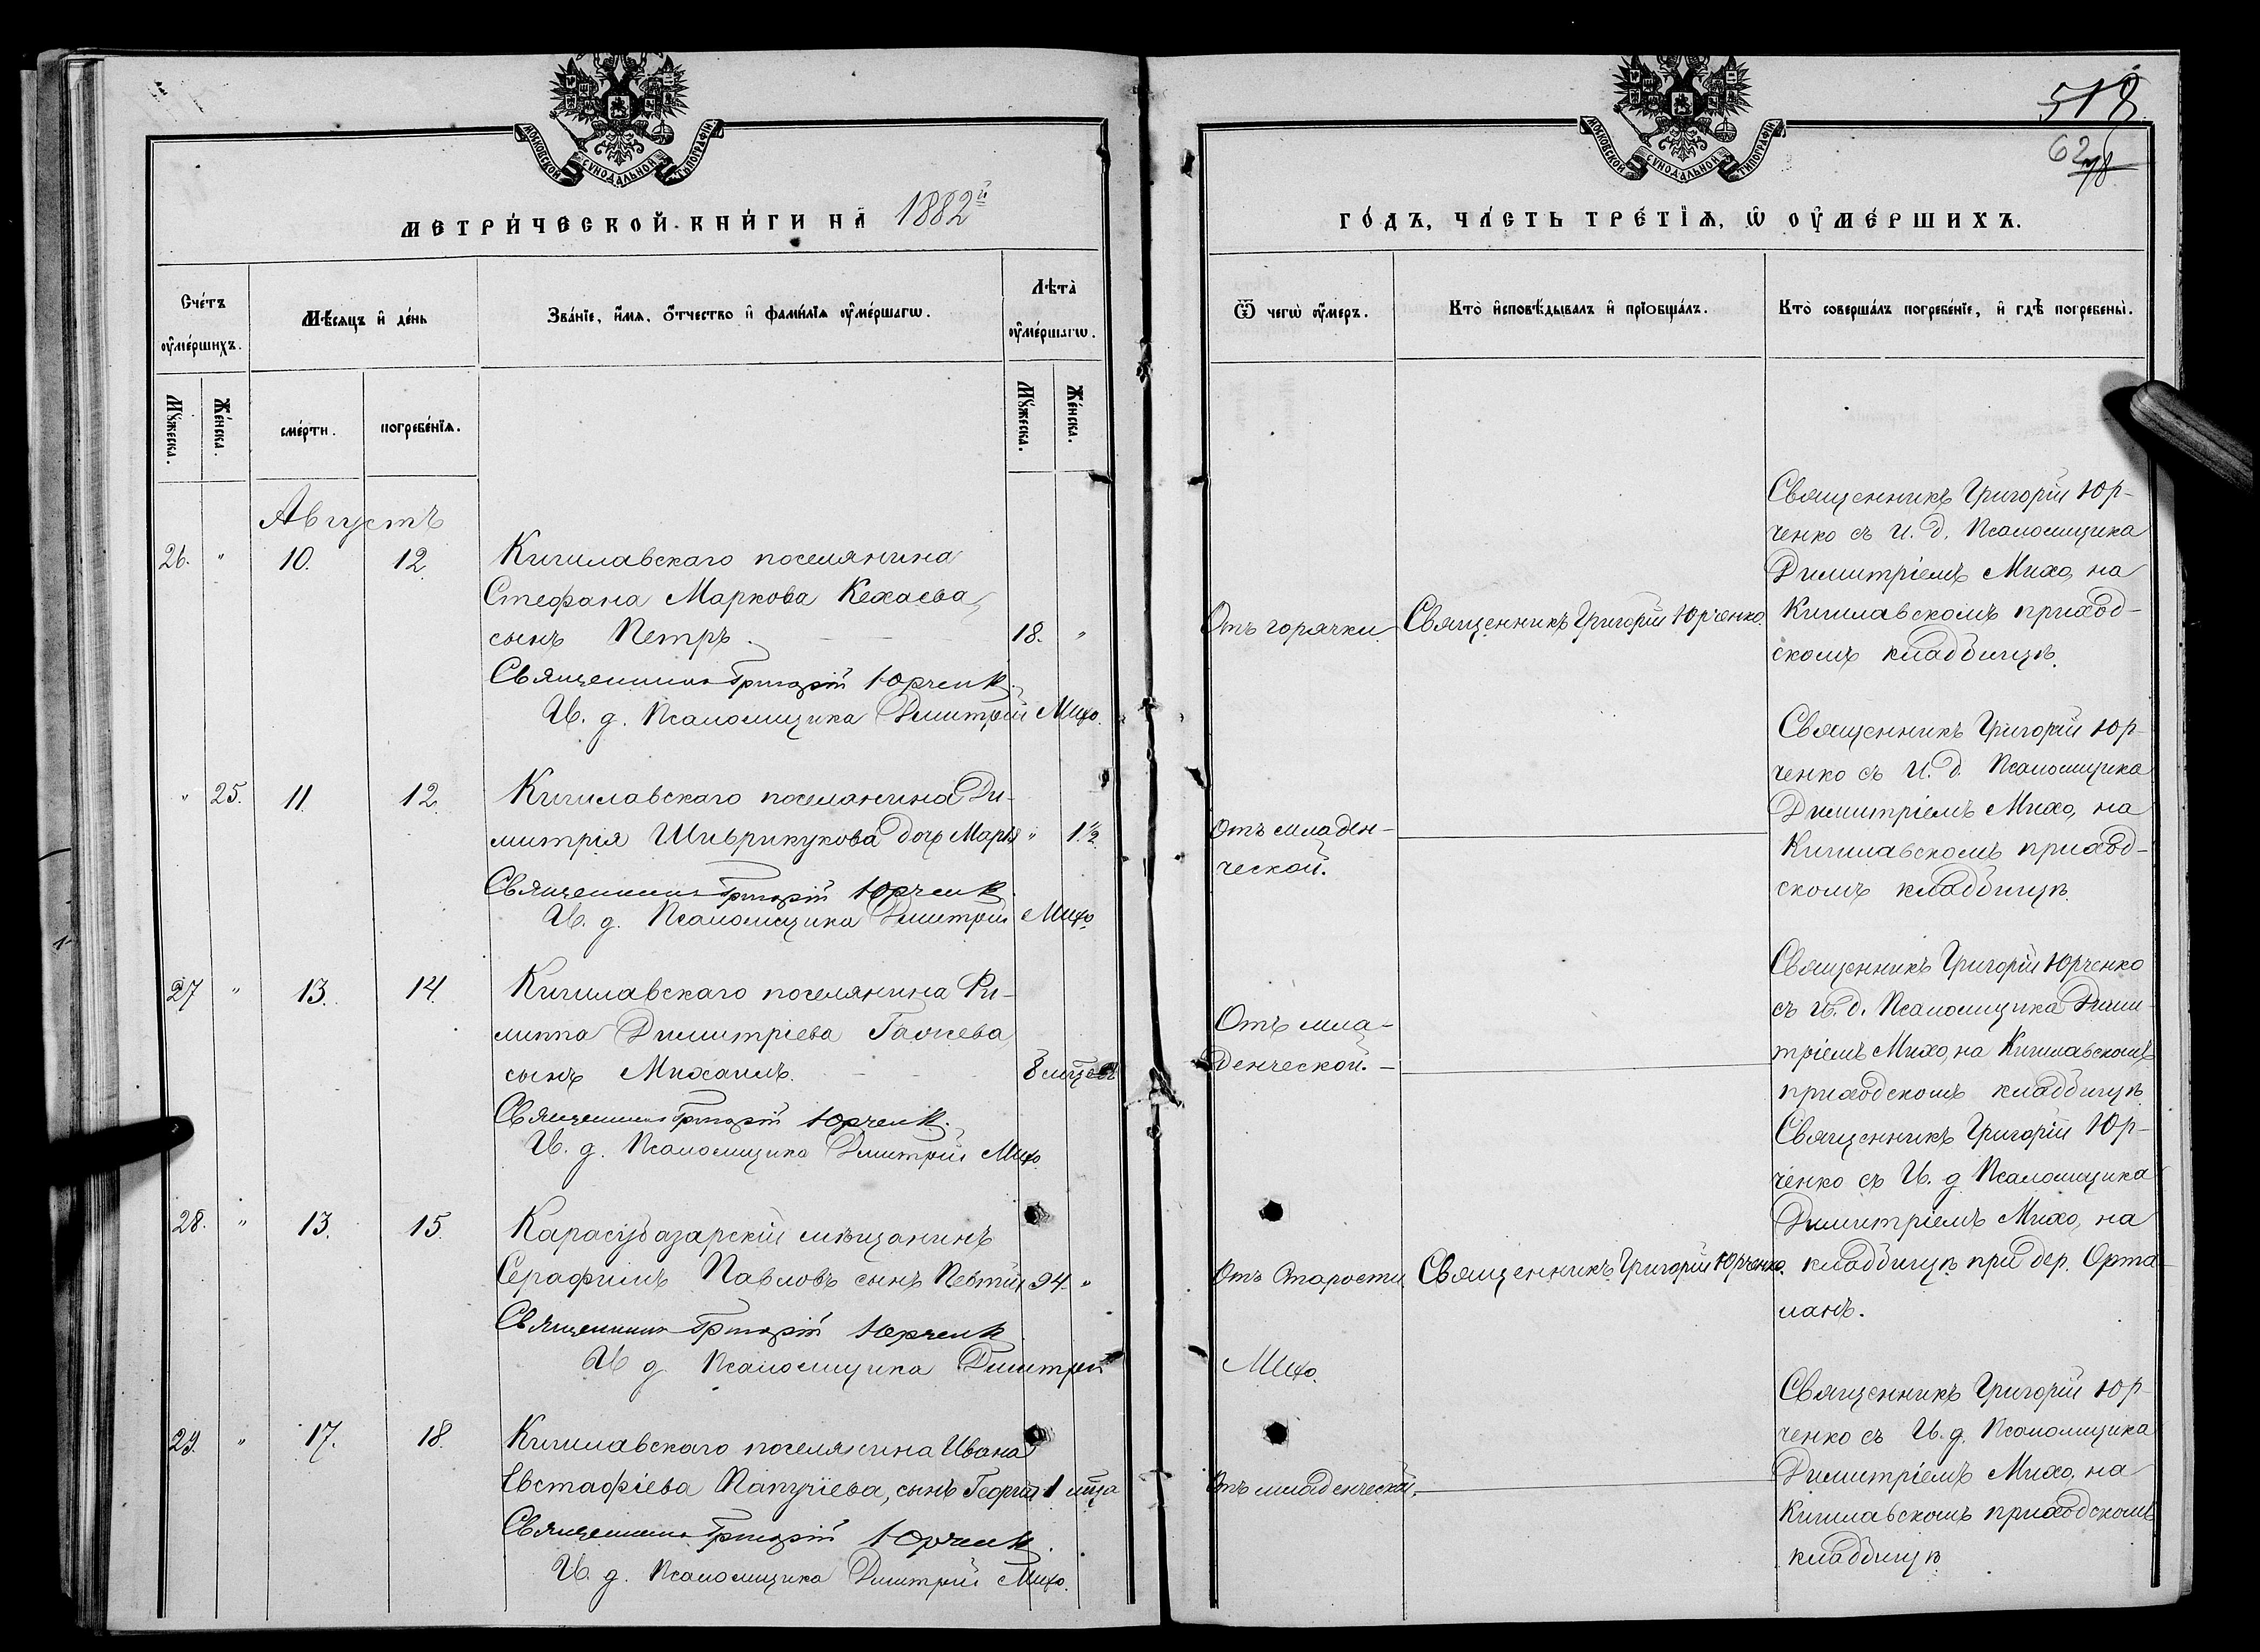 МОСКОВСКОЙ СѴНОДАЛЬНОЙ ТИПОГРАФІИ
МЕТРИ́ЧЕСКОЙ КНИ́ГИ НА 1882й
Сче́тъ ѹ҆ме́ршихъ.
Мѣ́сяцъ и҆ де́нь
Зва́нїе, и҆́мя, ѻ҆́тчество и҆ фами́лїя ѹ҆ме́ршагѡ.
Лѣ́та ѹ҆ме́ршагѡ.
Мꙋ́жеска.
Же́нска.
сме́рти.
погребе́нїя.
Мꙋ́жеска.
Же́нска.
Августъ
26. " 10. 12. Кишлавскаго поселянина
Стефана Маркова Кехаева,
сынъ Петръ. 18. "
Священникъ Григорій Юрченко
И. д. Псаломщика Димитрій Михо.
" 25. 11. 12. Кишлавскаго поселянина Ди-
митрія Шиврикукова дочь Марія " 1½
Священникъ Григорій Юрченко
И. д. Псаломщика Димитрій Михо.
27 " 13. 14. Кишлавскаго поселянина Фи-
липпа Димитріева
сынъ Михаилъ. 8 мцевъ
Священникъ Григорій Юрченко.
И. д. Псаломщика Димитрій Михо.
28. " 13. 15. Карасубазарскій мѣщанинъ
Серафимъ Павловъ сынъ 94. "
Священникъ Григорій Юрченко
И д Псаломщика Димитрій Михо.
29. " 17. 18. Кишлавскаго поселянина Ивана
Евстафіева Папучіева, сынъ Георгій 1 мца
Священникъ Григорій Юрченко.
И. д. Псаломщика Димитрій Михо.
МОСКОВСКОЙ СѴНОДАЛЬНОЙ ТИПОГРАФІИ
518
62
78
ГО́ДЪ, ЧА́СТЬ ТРЕ́ТЇЯ, Ѡ ОУ҆МЕ́РШИХЪ.
Ѿ чегѡ̀ ѹ҆́меръ.
Кто̀ и҆сповѣ́дывалъ и҆ прїобща́лъ.
Кто̀ соверша́лъ погребе́нїе, и҆ гдѣ̀ погребены̀.
Отъ горячки.
Священникъ Григорій Юрченко.
Священникъ Григорій Юр-
ченко съ И. д. Псаломщика
Димитріемъ Михо, на
Кишлавскомъ приход-
скомъ кладбищѣ.
Отъ младен-
ческой.
Священникъ Григорій Юр-
ченко съ И. д. Псаломщика
Димитріемъ Михо, на
Кишлавскомъ приход-
скомъ кладбищѣ.
Отъ мла-
денческой.
Священникъ Григорій Юрченко
съ И. д. Псаломщика Дими-
тріемъ Михо, на Кишлавскомъ
приходскомъ кладбищѣ
Отъ Старости.
Священникъ Григорій Юрченко.
Священникъ Григорій Юр-
ченко съ И. д Псаломщика
Димитріемъ Михо, на
кладбищѣ при дер. Орта-
ланъ.
Отъ младенческой.
Священникъ Григорій Юр-
ченко съ И. д. Псаломщика
Димитріемъ Михо, на
Кишлавскомъ приходскомъ
кладбищѣ